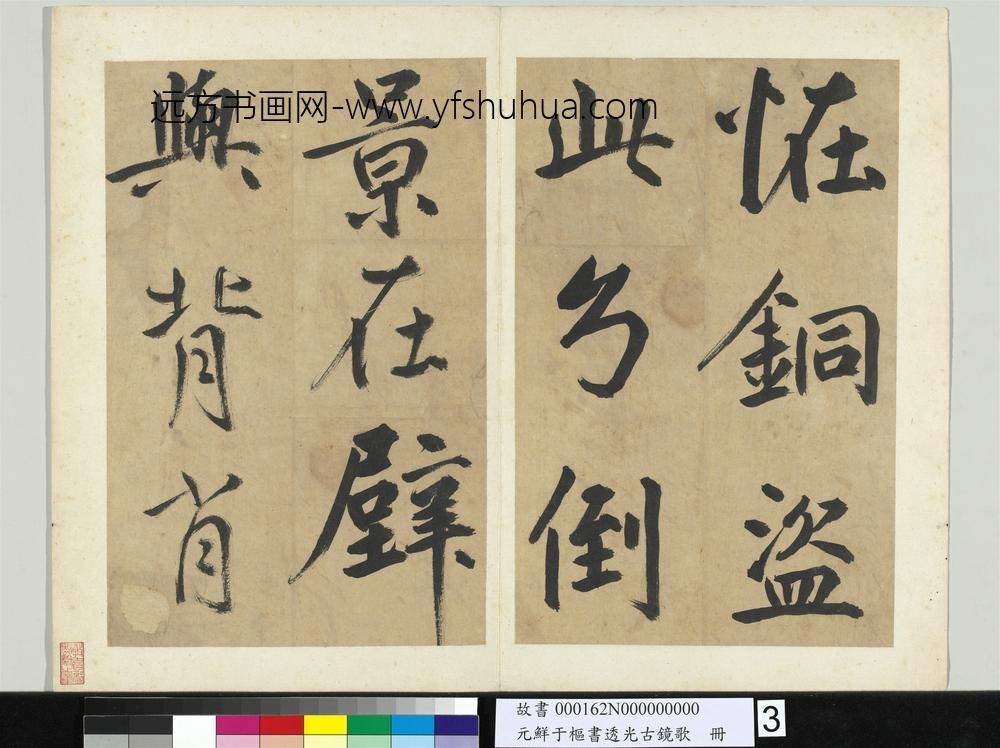 恠銅盜
此兮倒
景在壁
與背肖
远方书画网-www.yfshuhua.com
故書 000162N000000000
元鮮于樞書透光古鏡歌 冊
3